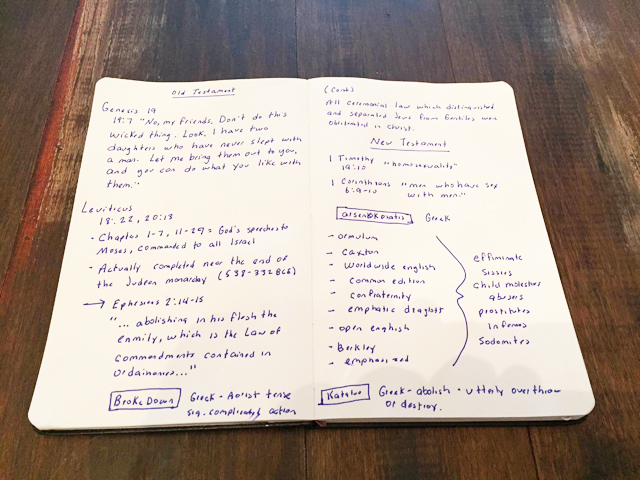 Old Testament
Genesis 19
19:7 "No, my friends. Don't do this
wicked thing. Look, I have two
daughters who have never slept with
a man. Let me bring them out to you,
and you can do what you like with
them."
Leviticus
18:22, 20:13
- Chapters 1-7, 11-27 = God's speeches to
Moses, commanded to all Israel
- Actually completed near the end of
the Judean monarchy (538-332 BCE)
→ Ephesians 2:14-15
"... abolishing in his flesh the
enmity, which is the Law of
commandments contained in
ordainances..."
Broke Down Greek - Aorist tense
sig. completely action
(Cont)
All ceremonial law which distinguished
and separated Jews from Gentiles were
obliterated in Christ.
New Testament
1 Timothy "homosexuality"
1 Corinthians "men who have sex
6:9-10 with men."
Greek
- ormulum
- Caxton
- Worldwide english
- Common edition
- Confraternity
- emphatic
- open english
- Berkley
- emphasized
effiminate
Sissies
Child molesters
abusers
prostitutes
Sodomites
Kataluo Greek - abolish - utterly overthrow
or destroy.